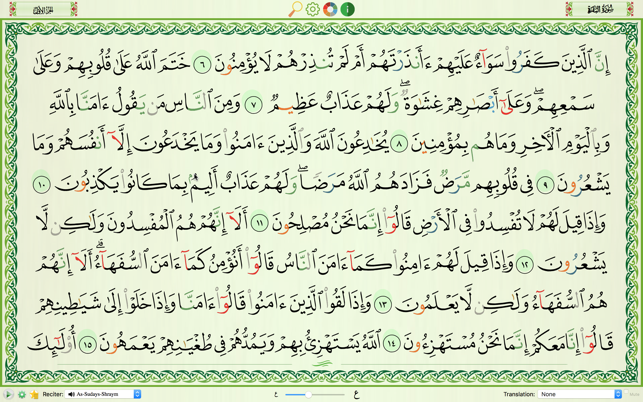 الجزء الأول
سورة البقرة
إِنَّ ٱلَّذِينَ كَفَرُوا۟ سَوَآءٌ عَلَيْهِمْ ءَأَنذَرْتَهُمْ أَمْ لَمْ تُنذِرْهُمْ لَا يُؤْمِنُونَ ٦ خَتَمَ ٱللَّهُ عَلَىٰ قُلُوبِهِمْ وَعَلَىٰ
سَمْعِهِمْ ۖ وَعَلَىٰٓ أَبْصَـٰرِهِمْ غِشَـٰوَةٌ ۖ وَلَهُمْ عَذَابٌ عَظِيمٌ ٧ وَمِنَ ٱلنَّاسِ مَن يَقُولُ ءَامَنَّا بِٱللَّهِ
وَبِٱلْيَوْمِ ٱلْـَٔاخِرِ وَمَا هُم بِمُؤْمِنِينَ ٨ يُخَـٰدِعُونَ ٱللَّهَ وَٱلَّذِينَ ءَامَنُوا۟ وَمَا يَخْدَعُونَ إِلَّآ أَنفُسَهُمْ وَمَا
يَشْعُرُونَ ٩ فِى قُلُوبِهِم مَّرَضٌ فَزَادَهُمُ ٱللَّهُ مَرَضًا ۖ وَلَهُمْ عَذَابٌ أَلِيمٌۢ بِمَا كَانُوا۟ يَكْذِبُونَ ١٠
وَإِذَا قِيلَ لَهُمْ لَا تُفْسِدُوا۟ فِى ٱلْأَرْضِ قَالُوٓا۟ إِنَّمَا نَحْنُ مُصْلِحُونَ ١١ أَلَآ إِنَّهُمْ هُمُ ٱلْمُفْسِدُونَ وَلَـٰكِن لَّا
يَشْعُرُونَ ١٢ وَإِذَا قِيلَ لَهُمْ ءَامِنُوا۟ كَمَآ ءَامَنَ ٱلنَّاسُ قَالُوٓا۟ أَنُؤْمِنُ كَمَآ ءَامَنَ ٱلسُّفَهَآءُ ۗ أَلَآ إِنَّهُمْ
هُمُ ٱلسُّفَهَآءُ وَلَـٰكِن لَّا يَعْلَمُونَ ١٣ وَإِذَا لَقُوا۟ ٱلَّذِينَ ءَامَنُوا۟ قَالُوٓا۟ ءَامَنَّا وَإِذَا خَلَوْا۟ إِلَىٰ شَيَـٰطِينِهِمْ
قَالُوٓا۟ إِنَّا مَعَكُمْ إِنَّمَا نَحْنُ مُسْتَهْزِءُونَ ١٤ ٱللَّهُ يَسْتَهْزِئُ بِهِمْ وَيَمُدُّهُمْ فِى طُغْيَـٰنِهِمْ يَعْمَهُونَ ١٥ أُو۟لَـٰٓئِكَ
Reciter: As-Sudays-Shraym ع ع Translation: None